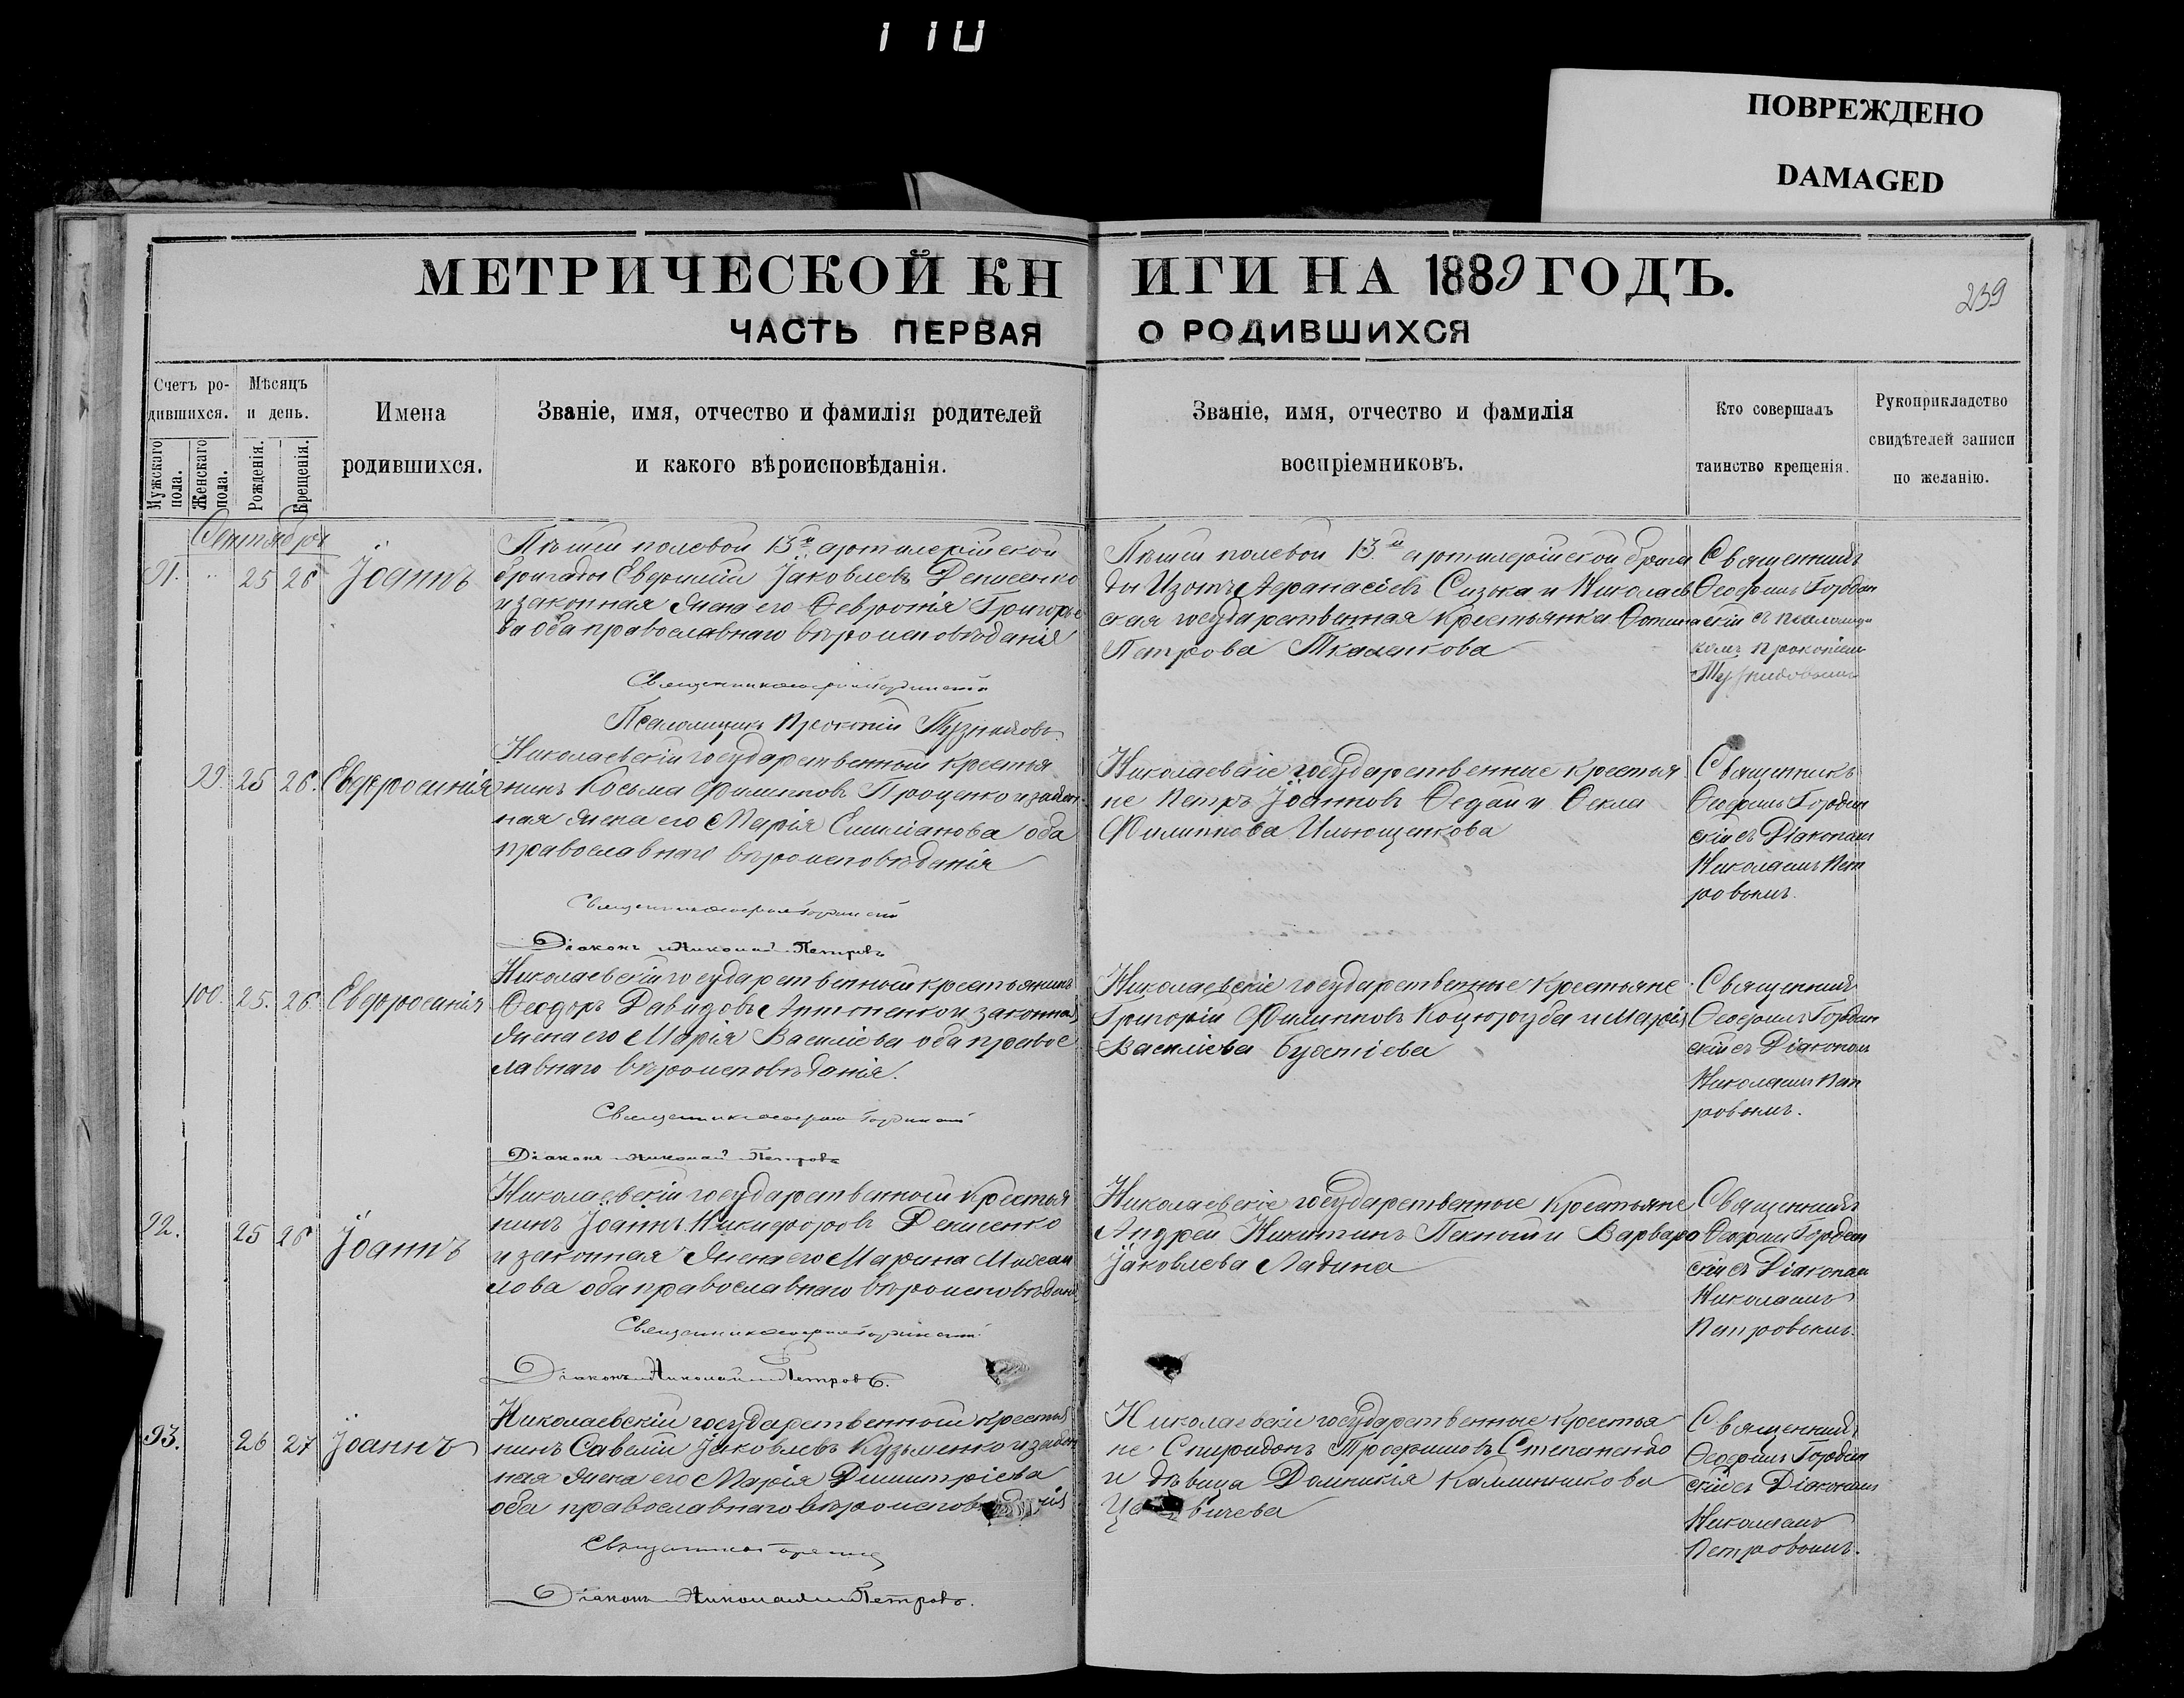 110
ПОВРЕЖДЕНО
DAMAGED
МЕТРИЧЕСКОЙ КНИГИ НА 1889 ГОДЪ.
239
ЧАСТЬ ПЕРВАЯ О РОДИВШИХСЯ
Счетъ родившихся.
Мужскаго пола.
Женскаго пола.
Мѣсяцъ и день.
Рожденія.
Крещенія.
Имена родившихся.
Званіе, имя, отчество и фамилія родителей
и какого вѣроисповѣданія.
Званіе, имя, отчество и фамилія
воспріемниковъ.
Кто совершалъ
таинство крещенія.
Рукоприкладство
свидѣтелей записи
по желанію.
Сентября
91. " 25 26 Іоаннъ
Пѣшей полевой 13й артилерійской
бригады Евфимій Іаковлевъ Денисенко
и законная жена его Ѳевронія Григорье
ва оба православнаго вѣроисповѣданія
Священникъ
Псаломщикъ Прокопій
Пѣшей полевой 13й артилерійской брига
ды Изотъ Афанасіевъ Сизька и Николаев
ская государственная крестьянка Фотина
Петрова Ткаченкова
Священникъ
Ѳеофилъ Городан
скій съ псаломщи
комъ Прокопіемъ
99. 25 26. Евфросинія
Николаевскій государственный крестья
нинъ Косьма Филиповъ Проценко и закон
ная жена его Марія Емиліанова оба
православнаго вѣроисповѣданія
Священникъ
Діаконъ Николай Петровъ
Николаевскіе государственные крестья
не Петръ Іоанновъ Ѳедай и Ѳекла
Филиппова Ильющенкова
Священникъ
Ѳеофилъ
скій съ Діакономъ
Николаемъ Пет
ровымъ.
100. 25. 26 Евфросинія
Николаевскій государственный крестьянинъ
Ѳеодоръ Давидовъ Антоненко и законная
жена его Марія Василіева оба правос
лавнаго вѣроисповѣданія.
Священникъ
Діаконъ Николай Петровъ
Николаевскіе государственные крестьяне
Григорій Филипповъ Коцюруба и Марія
Василіева
Священникъ
Ѳеофилъ
скій съ Діакономъ
Николаемъ Пет
ровымъ.
92. 25 26 Іоаннъ
Николаевскій государственный крестья
нинъ Іоаннъ Никифоровъ Денисенко
и законная жена его Марина Михаи
лова оба православнаго вѣроисповѣданія
Священникъ
Діаконъ Николай Петровъ.
Николаевскіе государственные крестьяне
Андрей Никитинъ и Варвара
Іаковлева Ладина
Священникъ
Ѳеофилъ
скій съ Діакономъ
Николаемъ
Петровымъ.
93. 26 27 Іоаннъ
Николаевскій государственный крестья
нинъ Савелій Іаковлевъ Кузьменко и закон
ная жена его Марія Димитріева
оба православнаго
Священникъ
Діаконъ Николай Петровъ.
Николаевскіе государственные крестья
не Спиридонъ Трофимовъ Степаненко
и дѣвица Домникія Калинникова
Священникъ
Ѳеофилъ
скій съ Діакономъ
Николаемъ
Петровымъ.